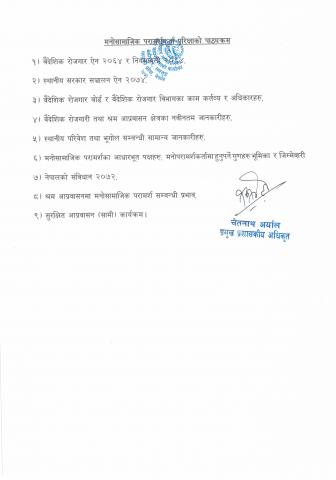 मनोसामाजिक परामर्शकर्ता परिक्षाको पाठ्यक्रम
१) बैदेशिक रोजगार ऐन २०६४ र नियमावली २०६४,
२) स्थानीय सरकार सञ्चालन ऐन २०७४,
३) बैदेशिक रोजगार बोर्ड र बैदेशिक रोजगार विभागका काम कर्तव्य र अधिकारहरु,
४) बैदेशिक रोजगारी तथा श्रम आप्रवासन क्षेत्रका नवीनतम जानकारीहरु,
५) स्थानीय परिवेश तथा भूगोल सम्वन्धी सामान्य जानकारीहरु,
६) मनोसामाजिक परामर्शका आधारभूत पक्षहरु, मनोपरामर्शकर्तामा हुनुपर्ने गुणहरु भूमिका र जिम्मेवारी
७) नेपालको संविधान २०७२,
८) श्रम आप्रवासनमा मनोसामाजिक परामर्श सम्वन्धी प्रभाव,
९) सुरक्षित आप्रवासन (सामी) कार्यक्रम।
चेतनाथ अर्याल
प्रमुख प्रशासकीय अधिकृत